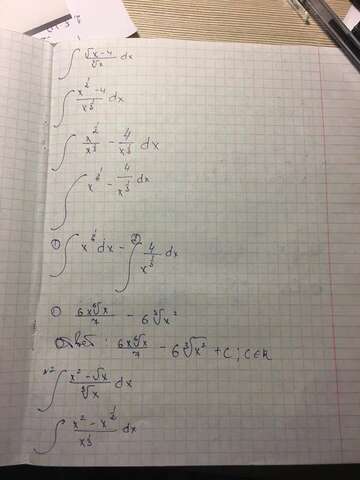 ∫ (√x − 4)/∛x dx
∫ (x^{1/2} − 4)/x^{1/3} dx
∫ x^{1/2}/x^{1/3} − 4/x^{1/3} dx
∫ x^{1/6} − 4/x^{1/3} dx
① ∫ x^{1/6} dx − ② ∫ 4/x^{1/3} dx
① 6x⁶√x/7 − 6∛x²
Ответ: 6x⁶√x/7 − 6∛x² + C; C∈R
∫ (x² − √x)/∛x dx
∫ (x² − x^{1/2})/x^{1/3} dx